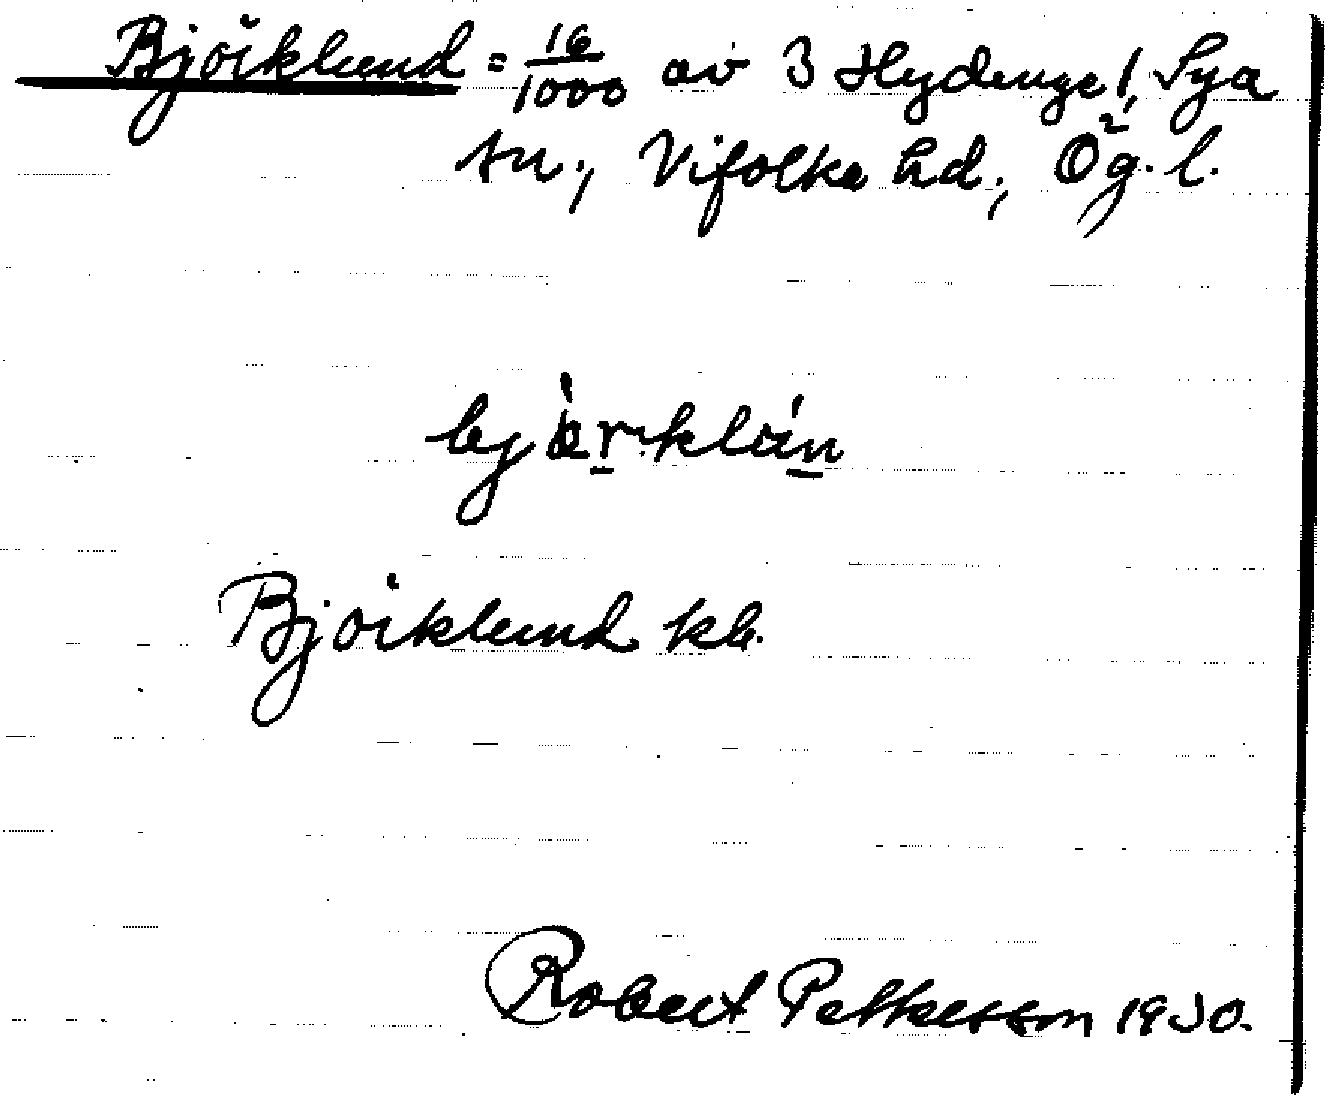 Björklund = 16/1000 av 3 Hydinge, Sya
sn., Vifolka hd., Ög. l.
bjö̀r·klún
Björklund kb.
Robert Pettersson 1930.